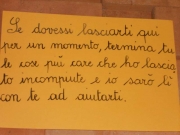 Se dovessi lasciarti qui
per un momento, termina tu
le cose più care che ho lascia
to incompiute e io sarò lì
con te ad aiutarti.